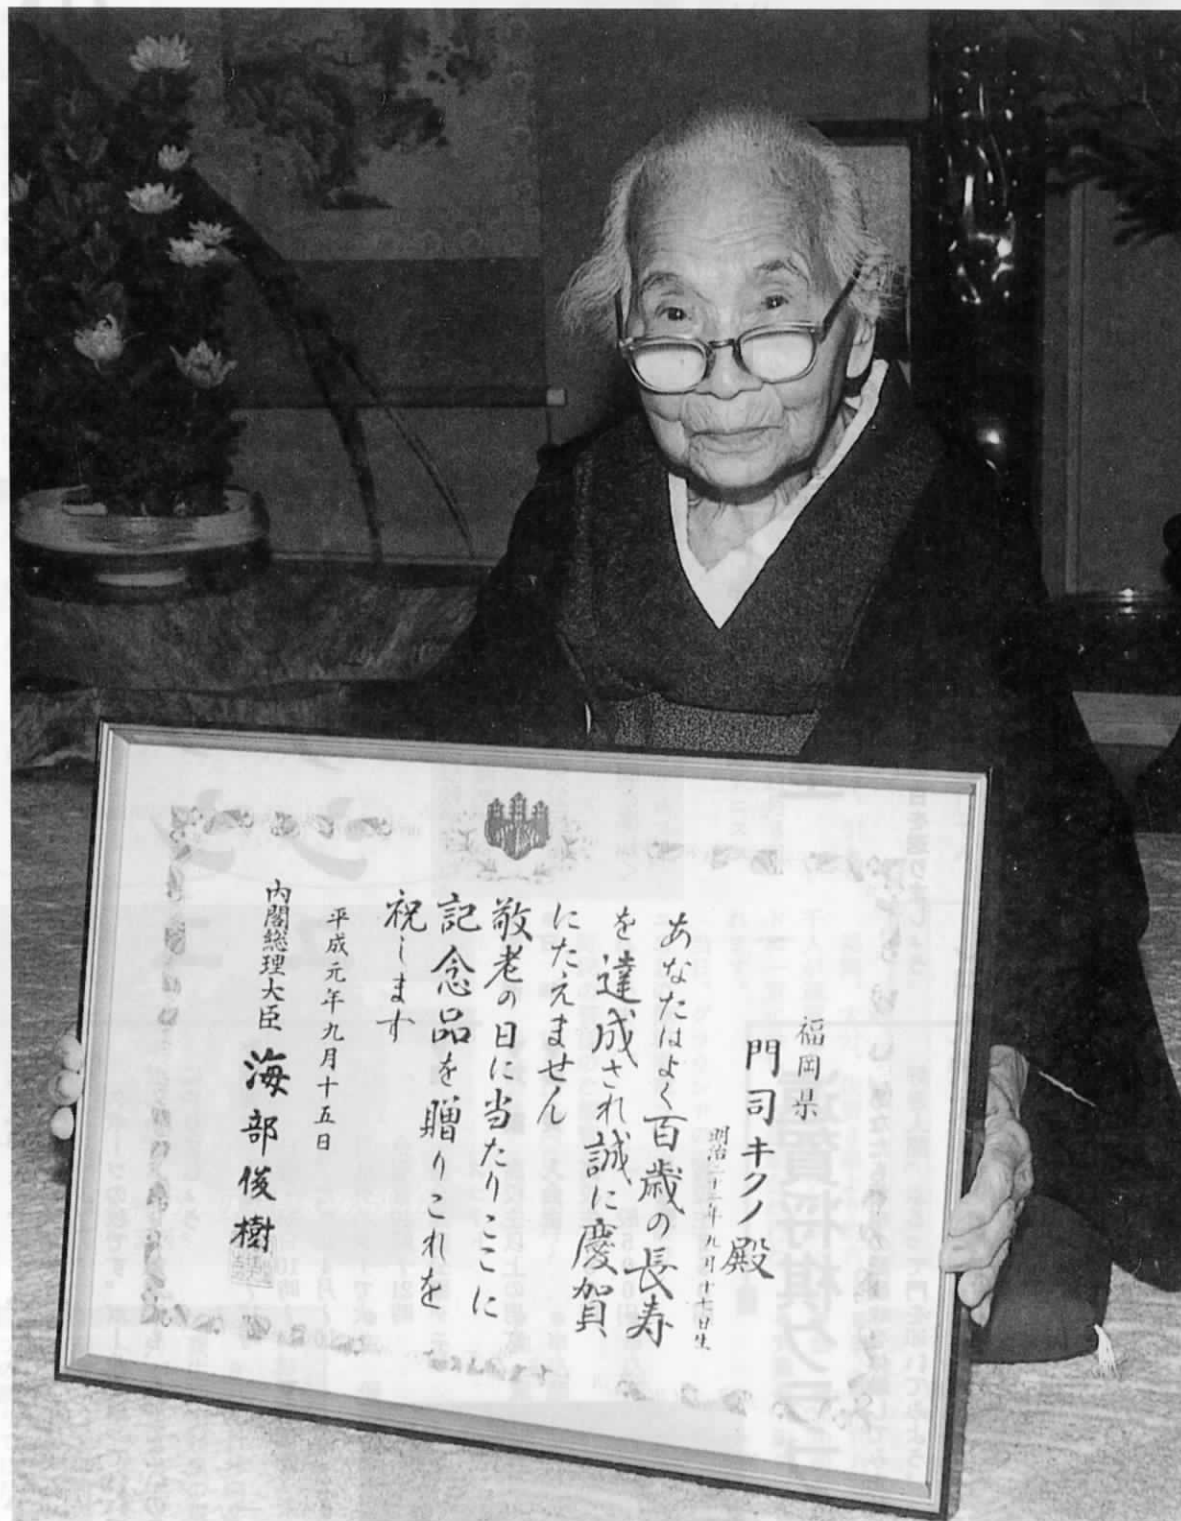 福岡県
門司キクノ殿
明治二十二年九月十六日生
あなたはよく百歳の長寿
を達成され誠に慶賀
にたえません
敬老の日に当たりここに
記念品を贈りこれを
祝します
平成元年九月十五日
内閣総理大臣 海部俊樹